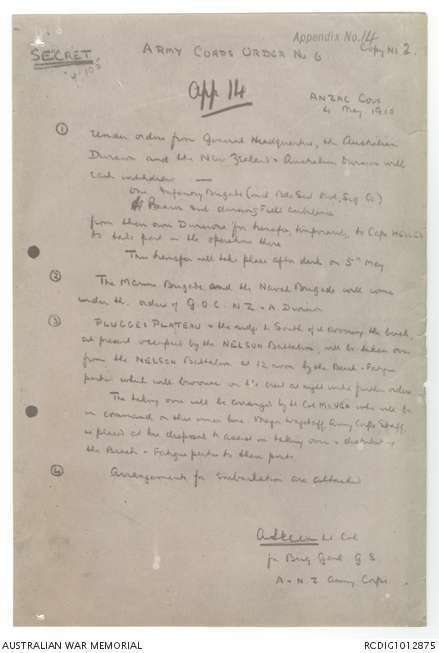 Appendix No. 14
SECRET
ARMY CORPS ORDER No 6
Copy No 2.
4/5/05
App 14
ANZAC Cove
4 May 1915
(1) Under orders from General Headquarters, the Australian
Division and the New Zealand & Australian Division will
each withdraw —
One Infantry Brigade (
Bearer Sub divisions Field Ambulance
from their own Divisions for transfer, temporarily, to Cape HELLES
to take part in the operations there
This transfer will take place after dark on 5th May
(2) The Marine Brigade and the Naval Brigade will come
under the orders of G.O.C. N.Z. & A. Division
(3) PLUGGES PLATEAU & the ridge to South of it covering the beach,
at present occupied by the NELSON Battalion, will be taken over
from the NELSON Battalion at 12 noon by the Beach & Fatigue
parties which will bivouac on its crest at night until further orders
The taking over will be arranged by Lt Col who will be
in command on this inner line. Major Wagstaff, Army Corps Staff,
is placed at his disposal to assist in taking over & distribution of
the Beach & Fatigue parties to their posts.
(4) Arrangements for Embarkation are attached
A Skeen Lt Col
for Brig Genl G.S.
A. & N.Z. Army Corps
AUSTRALIAN WAR MEMORIAL
RCDIG1012875